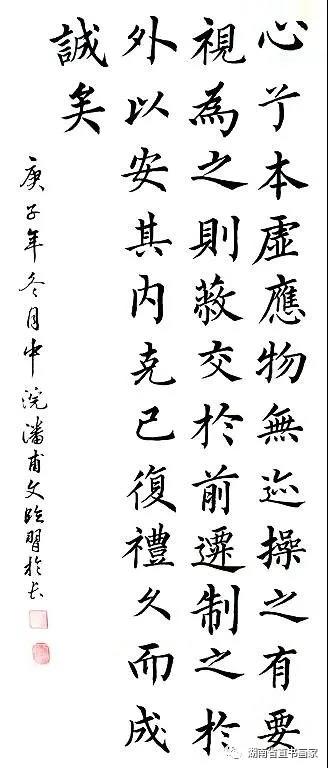 心兮本虛應物無迹操之有要
視為之則蔽交於前遷制之於
外以安其内克己復禮久而成
誠矣
庚子年冬月中浣潘甫文临習於长
湖南省直书画家